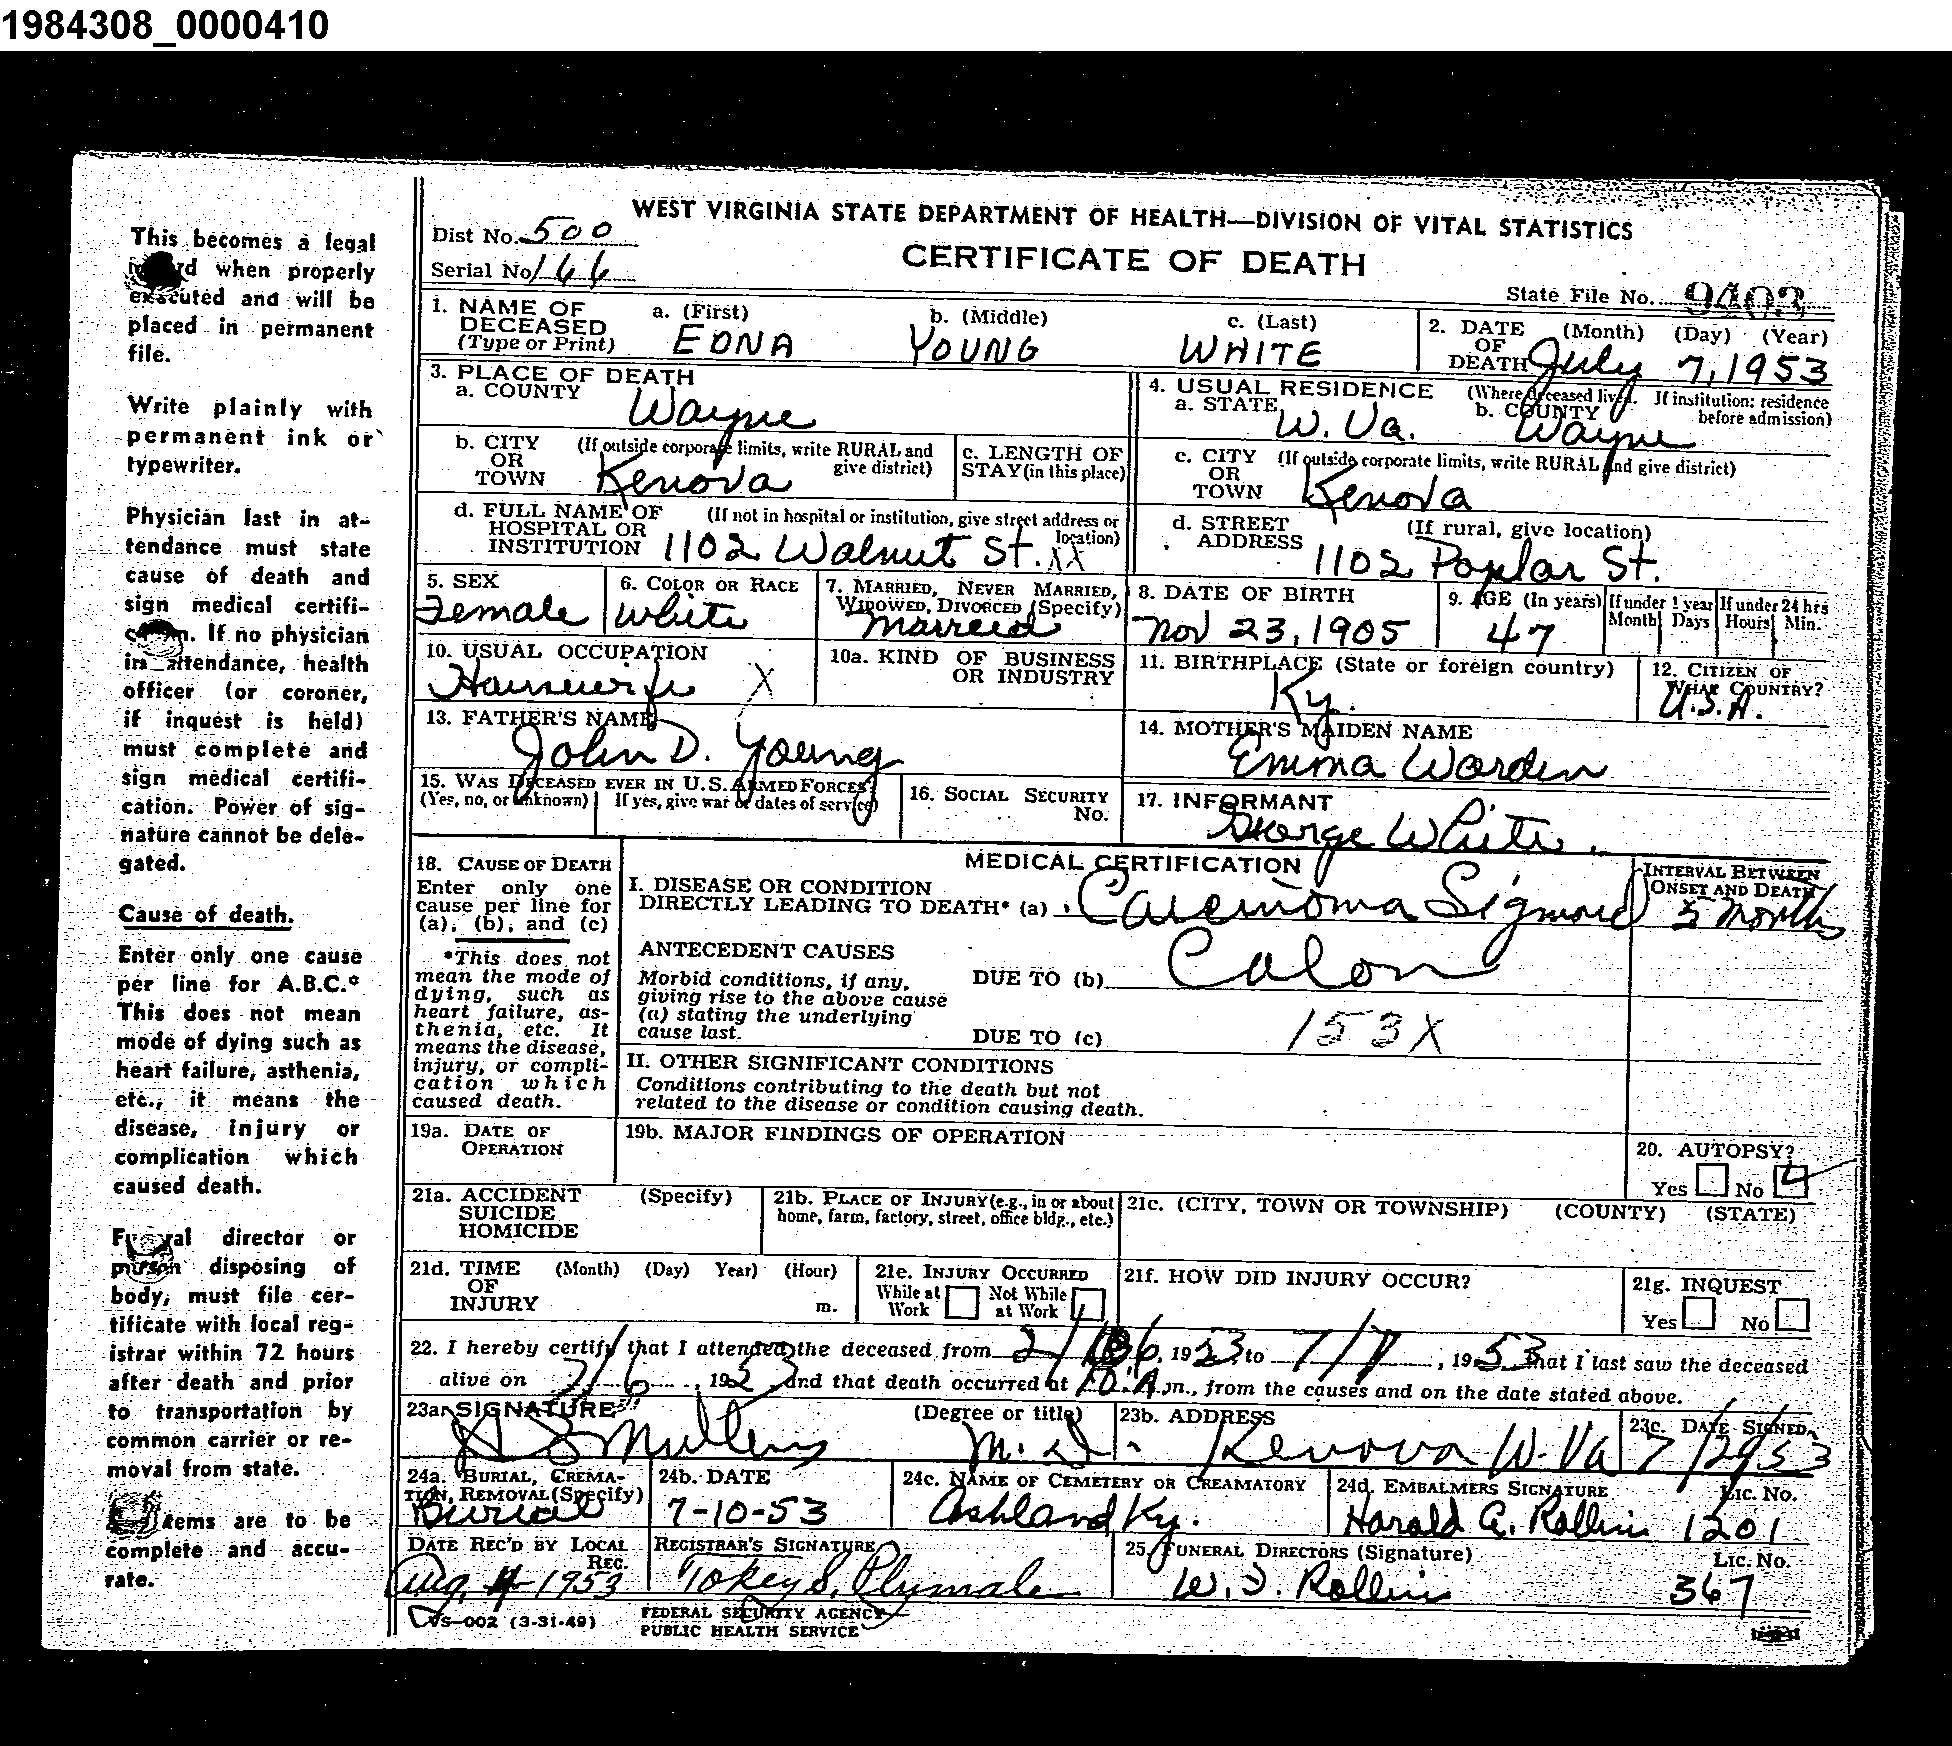 1984308_0000410
This becomes a legal
record when properly
executed and will be
placed in permanent
file.
Write plainly with
permanent ink or
typewriter.
Physician last in at-
tendance must state
cause of death and
sign medical certifi-
cation. If no physician
in attendance, health
officer (or coroner,
if inquest is held)
must complete and
sign medical certifi-
cation. Power of sig-
nature cannot be dele-
gated.
Cause of death.
Enter only one cause
per line for A.B.C.*
This does not mean
mode of dying such as
heart failure, asthenia,
etc., it means the
disease, injury or
complication which
caused death.
Funeral director or
person disposing of
body, must file cer-
tificate with local reg-
istrar within 72 hours
after death and prior
to transportation by
common carrier or re-
moval from state.
items are to be
complete and accu-
rate.
WEST VIRGINIA STATE DEPARTMENT OF HEALTH—DIVISION OF VITAL STATISTICS
CERTIFICATE OF DEATH
Dist No. 500
Serial No. 166
State File No. 9403
1. NAME OF DECEASED (Type or Print) a. (First) EDNA b. (Middle) YOUNG c. (Last) WHITE
2. DATE OF DEATH (Month) (Day) (Year) July 7, 1953
3. PLACE OF DEATH
a. COUNTY Wayne
b. CITY OR TOWN (If outside corporate limits, write RURAL and give district) Kenova
c. LENGTH OF STAY (in this place)
d. FULL NAME OF HOSPITAL OR INSTITUTION (If not in hospital or institution, give street address or location) 1102 Walnut St. XX
4. USUAL RESIDENCE (Where deceased lived. If institution: residence before admission)
a. STATE W. Va. b. COUNTY Wayne
c. CITY OR TOWN (If outside corporate limits, write RURAL and give district) Kenova
d. STREET ADDRESS (If rural, give location) 1102 Poplar St.
5. SEX Female
6. COLOR OR RACE White
7. MARRIED, NEVER MARRIED, WIDOWED, DIVORCED (Specify) Married
8. DATE OF BIRTH Nov 23, 1905
9. AGE (In years) 47 If under 1 year Months Days If under 24 hrs Hours Min.
10. USUAL OCCUPATION Housewife X
10a. KIND OF BUSINESS OR INDUSTRY
11. BIRTHPLACE (State or foreign country) Ky.
12. CITIZEN OF WHAT COUNTRY? U.S.A.
13. FATHER'S NAME John D. Young
14. MOTHER'S MAIDEN NAME Emma Worden
15. WAS DECEASED EVER IN U.S. ARMED FORCES? (Yes, no, or unknown) If yes, give war or dates of service)
16. SOCIAL SECURITY No.
17. INFORMANT George White.
18. CAUSE OF DEATH
Enter only one
cause per line for
(a), (b), and (c)
*This does not
mean the mode of
dying, such as
heart failure, as-
thenia, etc. It
means the disease,
injury, or compli-
cation which
caused death.
MEDICAL CERTIFICATION
I. DISEASE OR CONDITION DIRECTLY LEADING TO DEATH* (a) Carcinoma Sigmoid
INTERVAL BETWEEN ONSET AND DEATH 5 Months
ANTECEDENT CAUSES
Morbid conditions, if any,
giving rise to the above cause
(a) stating the underlying
cause last.
DUE TO (b) Colon
DUE TO (c) 153X
II. OTHER SIGNIFICANT CONDITIONS
Conditions contributing to the death but not
related to the disease or condition causing death.
19a. DATE OF OPERATION
19b. MAJOR FINDINGS OF OPERATION
20. AUTOPSY?
Yes No
21a. ACCIDENT SUICIDE HOMICIDE (Specify)
21b. PLACE OF INJURY (e.g., in or about home, farm, factory, street, office bldg., etc.)
21c. (CITY, TOWN OR TOWNSHIP) (COUNTY) (STATE)
21d. TIME OF INJURY (Month) (Day) Year) (Hour) m.
21e. INJURY OCCURRED While at Work Not While at Work
21f. HOW DID INJURY OCCUR?
21g. INQUEST Yes No
22. I hereby certify that I attended the deceased from 2/ , 1953, to 7/7, 1953 that I last saw the deceased
alive on 7/6, 1953 and that death occurred at 10:A m., from the causes and on the date stated above.
23a. SIGNATURE Mullens (Degree or title) M. D.
23b. ADDRESS Kenova W-Va
23c. DATE SIGNED 7/29/53
24a. BURIAL, CREMA- TION, REMOVAL (Specify) Burial
24b. DATE 7-10-53
24c. NAME OF CEMETERY OR CREAMATORY Ashland Ky.
24d. EMBALMERS SIGNATURE Lic. No. Harald A. Rollins 1201
DATE REC'D BY LOCAL REG. Aug. 4 1953
REGISTRAR'S SIGNATURE Tokey S. Plymale
25. FUNERAL DIRECTORS (Signature) Lic. No. W. J. Rollins 367
VS—002 (3-31-49)
FEDERAL SECURITY AGENCY
PUBLIC HEALTH SERVICE